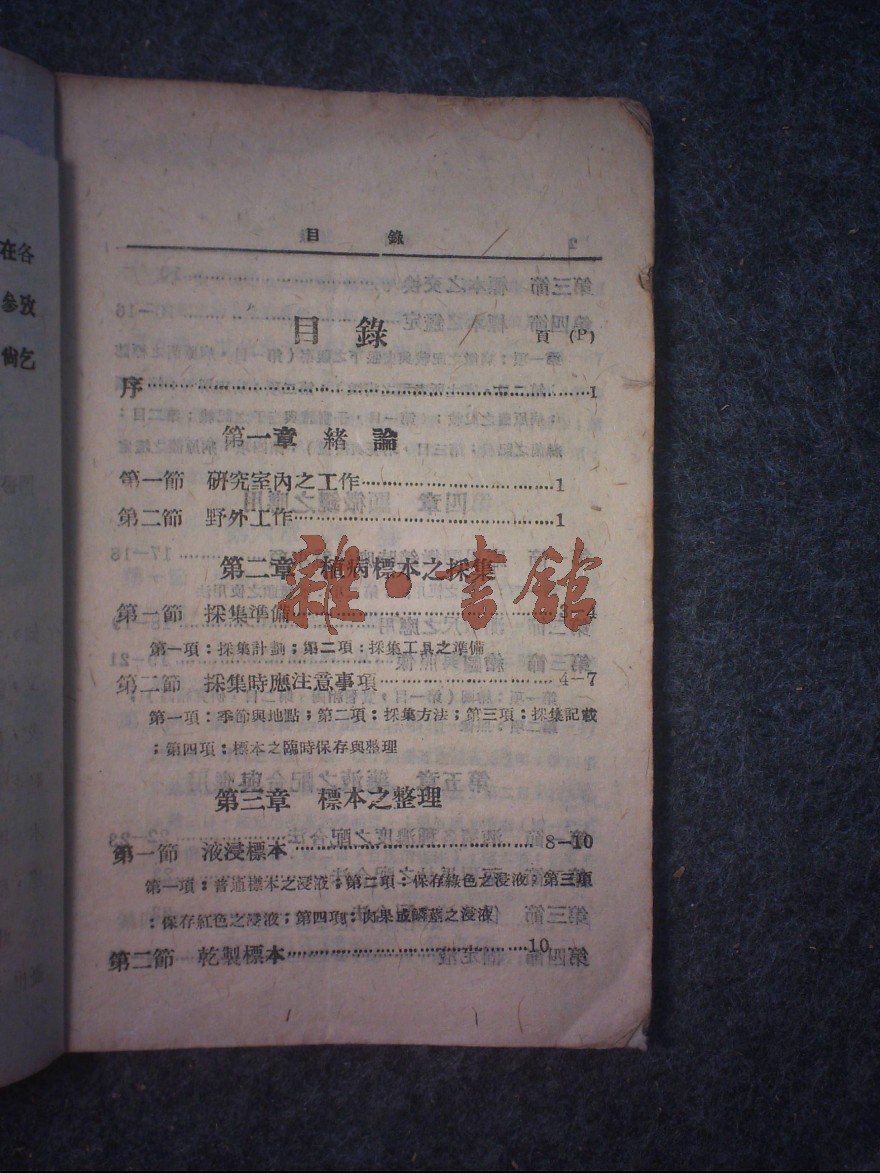 在各
參攷
尙乞
目 錄
目錄
頁 (P)
序……1
第一章 緒 論
第一節 硏究室內之工作……1
第二節 野外工作……1
第二章 植病標本之採集
第一節 採集準備……3—4
第一項：採集計劃；第二項：採集工具之準備
第二節 採集時應注意事項……4—7
第一項：季節與地點；第二項：採集方法；第三項：採集記載
；第四項：標本之臨時保存與整理
第三章 標本之整理
第一節 液浸標本……8—10
第一項：普通標本之浸液；第二項：保存綠色之浸液；第三項
：保存紅色之浸液；第四項：肉果或鱗莖之浸液
第二節 乾製標本……10
雜·書館